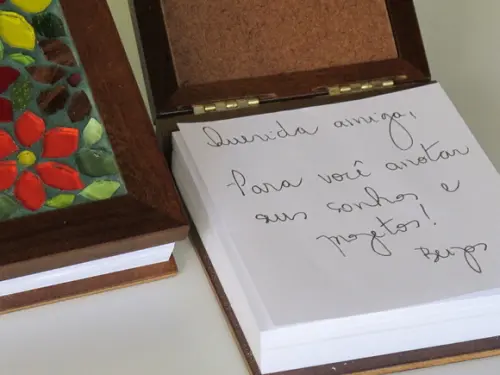 Querida amiga,
Para você anotar
seus sonhos e
projetos!
Beijos